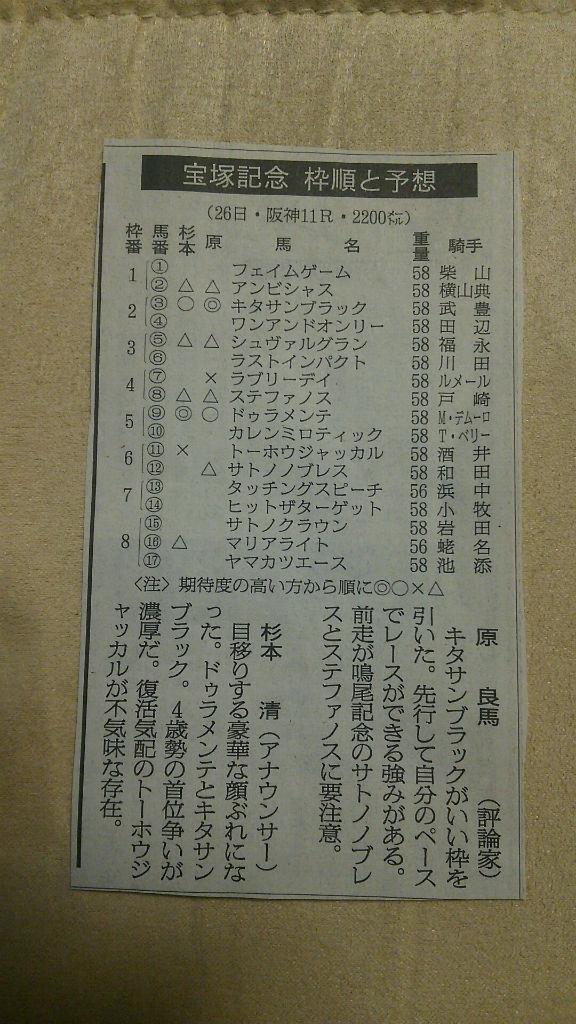 宝塚記念 枠順と予想
(26日・阪神11R・2200㍍)
枠番 馬番 杉本 原 馬名 重量 騎手
1 ① フェイムゲーム 58 柴山
② △ △ アンビシャス 58 横山典
2 ③ ○ ◎ キタサンブラック 58 武豊
④ ワンアンドオンリー 58 田辺
3 ⑤ △ △ シュヴァルグラン 58 福永
⑥ ラストインパクト 58 川田
4 ⑦ × ラブリーデイ 58 ルメール
⑧ △ △ ステファノス 58 戸崎
5 ⑨ ◎ ○ ドゥラメンテ 58 M・デムーロ
⑩ カレンミロティック 58 T・ベリー
6 ⑪ × トーホウジャッカル 58 酒井
⑫ △ サトノノブレス 58 和田
7 ⑬ タッチングスピーチ 56 浜中
⑭ ヒットザターゲット 58 小牧
8 ⑮ サトノクラウン 58 岩田
⑯ △ マリアライト 56 蛯名
⑰ ヤマカツエース 58 池添
〈注〉期待度の高い方から順に◎○×△
原 良馬(評論家)
キタサンブラックがいい枠を
引いた。先行して自分のペース
でレースができる強みがある。
前走が鳴尾記念のサトノノブレ
スとステファノスに要注意。
杉本 清(アナウンサー)
目移りする豪華な顔ぶれにな
った。ドゥラメンテとキタサン
ブラック。4歳勢の首位争いが
濃厚だ。復活気配のトーホウジ
ャッカルが不気味な存在。